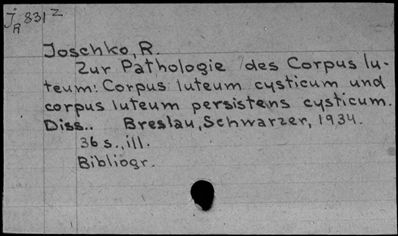 J 831 z
R
Joschko, R.
Zur Pathologie des Corpus lu-
teum: Corpus luteum cysticum und
corpus luteum persistens cysticum.
Diss.. Breslau, Schwarzer, 1934.
36 s., ill.
Bibliogr.